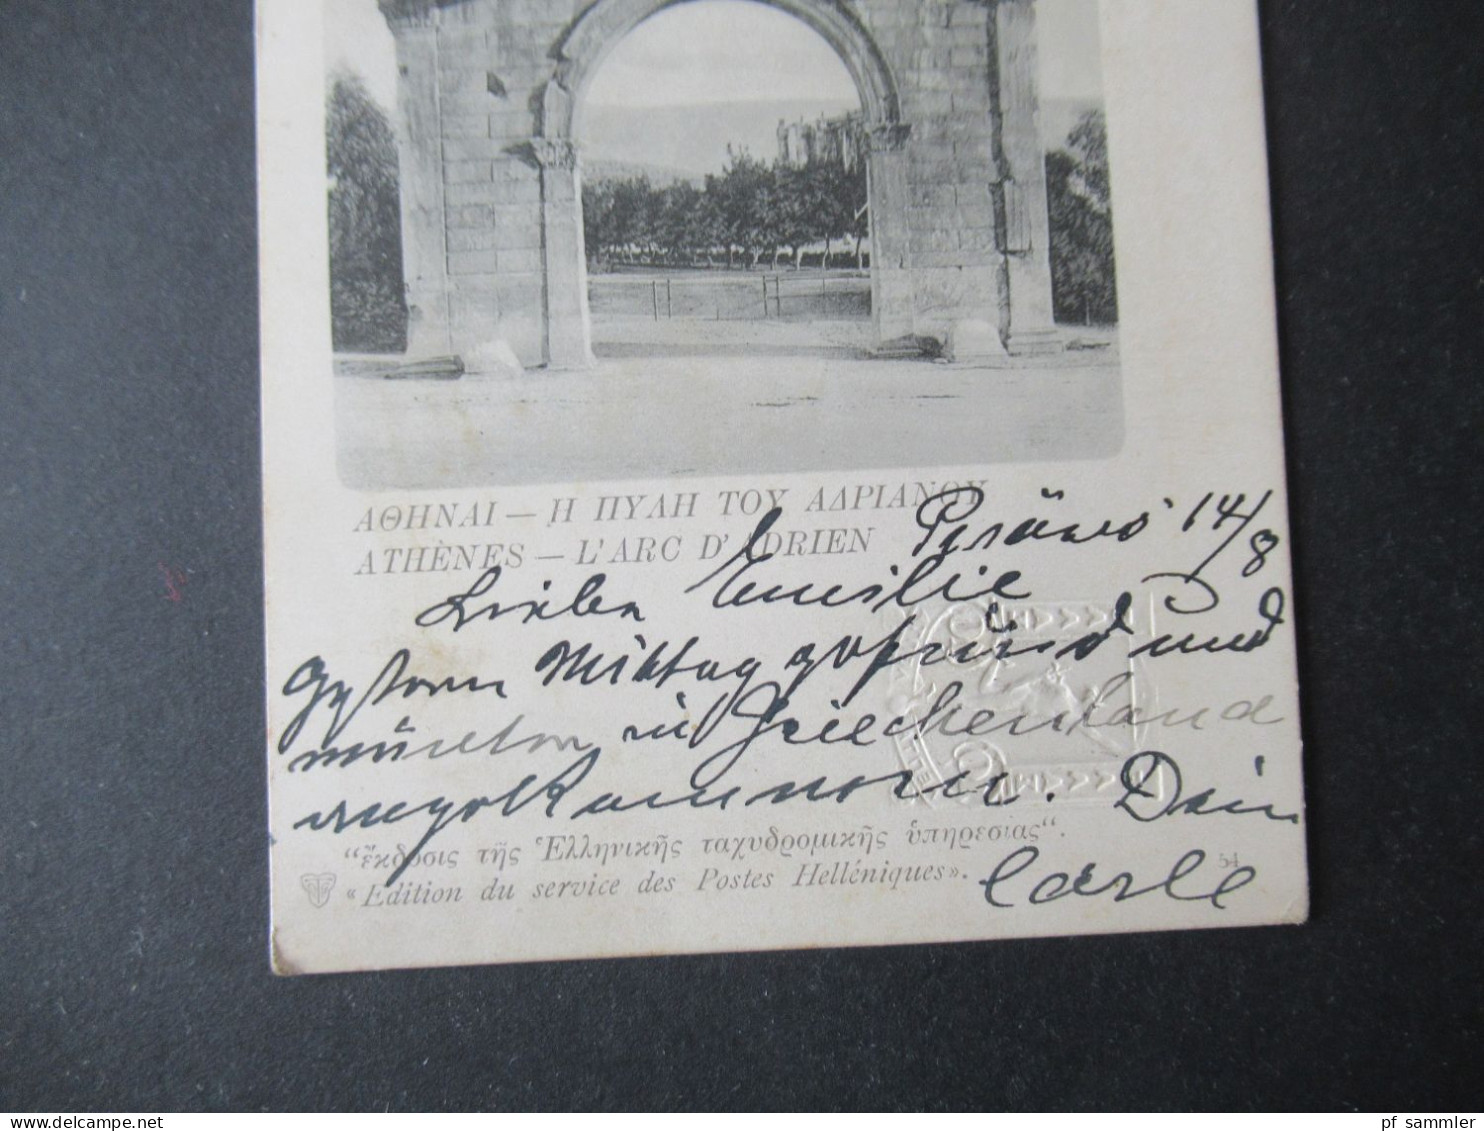 ΑΘΗΝΑΙ — Η ΠΥΛΗ ΤΟΥ ΑΔΡΙΑΝΟΥ
ATHÈNES — L'ARC D'ADRIEN
Piräus 14/8
Liebe Emilie
Gestern Mittag gesund und
munter in Griechenland
angekommen. Dein
Carle
“ἔκδοσις τῆς Ἑλληνικῆς ταχυδρομικῆς ὑπηρεσίας”.
« Edition du service des Postes Helléniques».
54
pf sammler